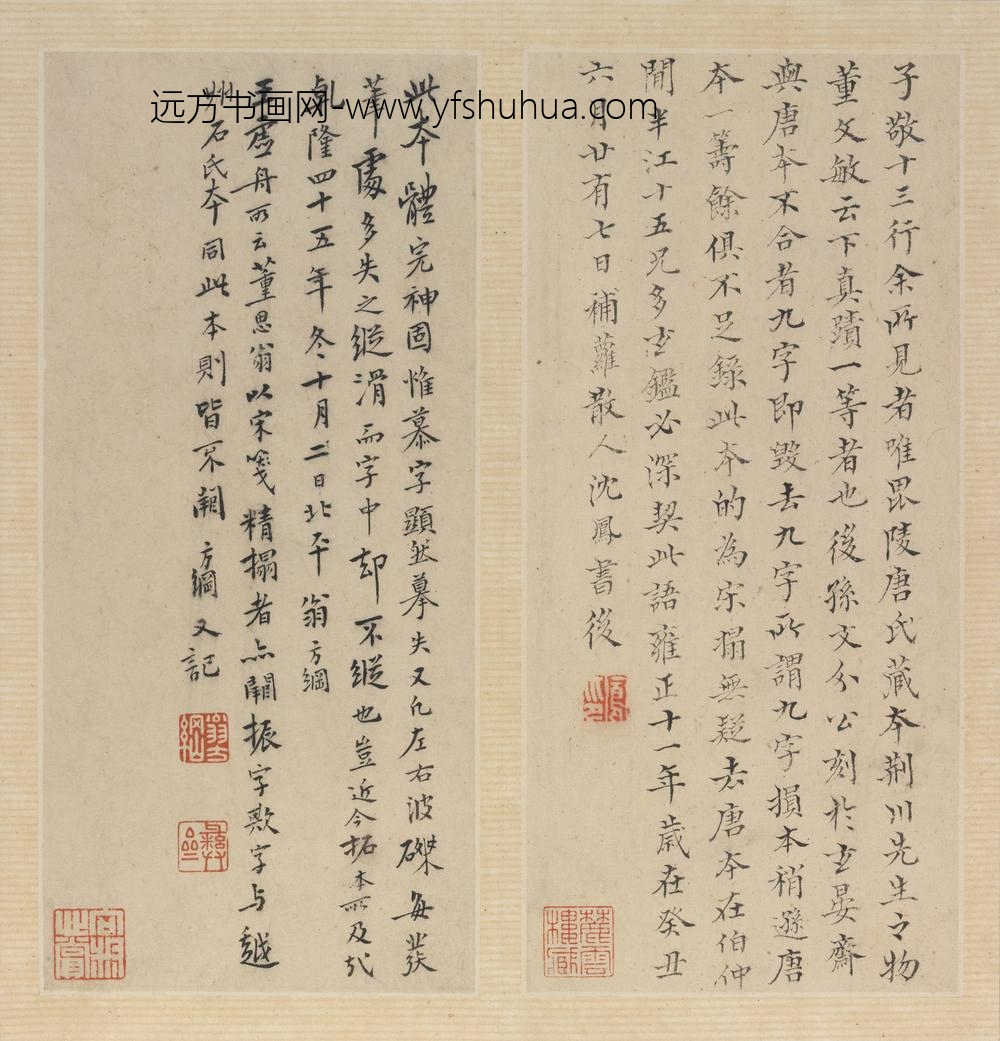 子敬十三行余所見者唯毘陵唐氏藏本荆川先生之物
董文敏云下真蹟一等者也後孫文介公刻於玄晏齋
與唐本不合者九字即毀去九字所謂九字損本稍遜唐
本一籌餘俱不足錄此本的為宋搨無疑去唐本在伯仲
間半江十五兄多玄鑑必深契此語雍正十一年歲在癸丑
六月廿有七日補蘿散人沈鳳書後
此本體完神固惟慕字顯然摹失又凡左右波磔每發
筆處多失之縱滑而字中却不縱也豈近今拓本所及哉
乹隆四十五年冬十月二日北平翁方綱
王虛舟所云董思翁以宋箋精搨者亦闕振字歎字与越
州石氏本同此本則皆不闕 方綱又記
远方书画网-www.yfshuhua.com